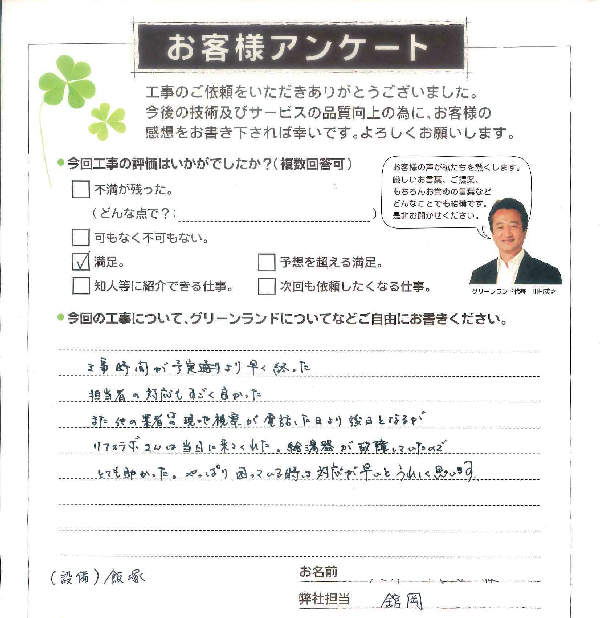 お客様アンケート
工事のご依頼をいただきありがとうございました。
今後の技術及びサービスの品質向上の為に、お客様の
感想をお書き下されば幸いです。よろしくお願いします。
●今回工事の評価はいかがでしたか?(複数回答可)
不満が残った。
(どんな点で?: )
可もなく不可もない。
満足。
予想を超える満足。
知人等に紹介できる仕事。
次回も依頼したくなる仕事。
お客様の声が私たちを熱くします。
厳しいお言葉、ご提案、
もちろんお誉めの言葉など
どんなことでも結構です。
是非お聞かせください。
グリーンランド代表
●今回の工事について、グリーンランドについてなどご自由にお書きください。
工事時間が予定通りより早く終った
担当者の対応もすごく良かった
また他の業者は現地視察が電話した日より後日となるが
リフォラボさんは当日に来てくれた。給湯器が故障していたので
とても助かった。やっぱり困っている時は対応が早いとうれしく思います
(設備)飯塚
お名前
様
弊社担当 館岡